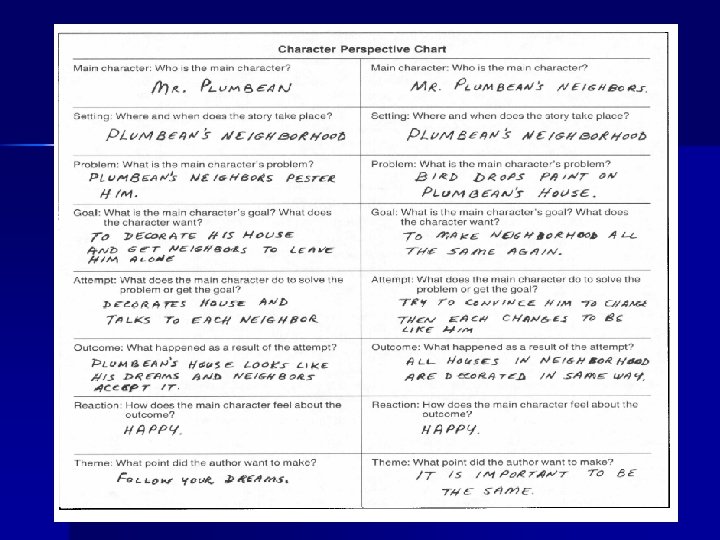 Character Perspective Chart
Main character: Who is the main character?
MR. PLUMBEAN
Setting: Where and when does the story take place?
PLUMBEAN'S NEIGHBORHOOD
Problem: What is the main character's problem?
PLUMBEAN'S NEIGHBORS PESTER
HIM.
Goal: What is the main character's goal? What does
the character want?
TO DECORATE HIS HOUSE
AND GET NEIGHBORS TO LEAVE
HIM ALONE
Attempt: What does the main character do to solve the
problem or get the goal?
DECORATES HOUSE AND
TALKS TO EACH NEIGHBOR
Outcome: What happened as a result of the attempt?
PLUMBEAN'S HOUSE LOOKS LIKE
HIS DREAMS AND NEIGHBORS
ACCEPT IT.
Reaction: How does the main character feel about the
outcome?
HAPPY.
Theme: What point did the author want to make?
FOLLOW YOUR DREAMS.
Main character: Who is the main character?
MR. PLUMBEAN'S NEIGHBORS.
Setting: Where and when does the story take place?
PLUMBEAN'S NEIGHBORHOOD
Problem: What is the main character's problem?
BIRD DROPS PAINT ON
PLUMBEAN'S HOUSE.
Goal: What is the main character's goal? What does
the character want?
TO MAKE NEIGHBORHOOD ALL
THE SAME AGAIN.
Attempt: What does the main character do to solve the
problem or get the goal?
TRY TO CONVINCE HIM TO CHANGE
THEN EACH CHANGES TO BE
LIKE HIM
Outcome: What happened as a result of the attempt?
ALL HOUSES IN NEIGHBORHOOD
ARE DECORATED IN SAME WAY.
Reaction: How does the main character feel about the
outcome?
HAPPY.
Theme: What point did the author want to make?
IT IS IMPORTANT TO BE
THE SAME.